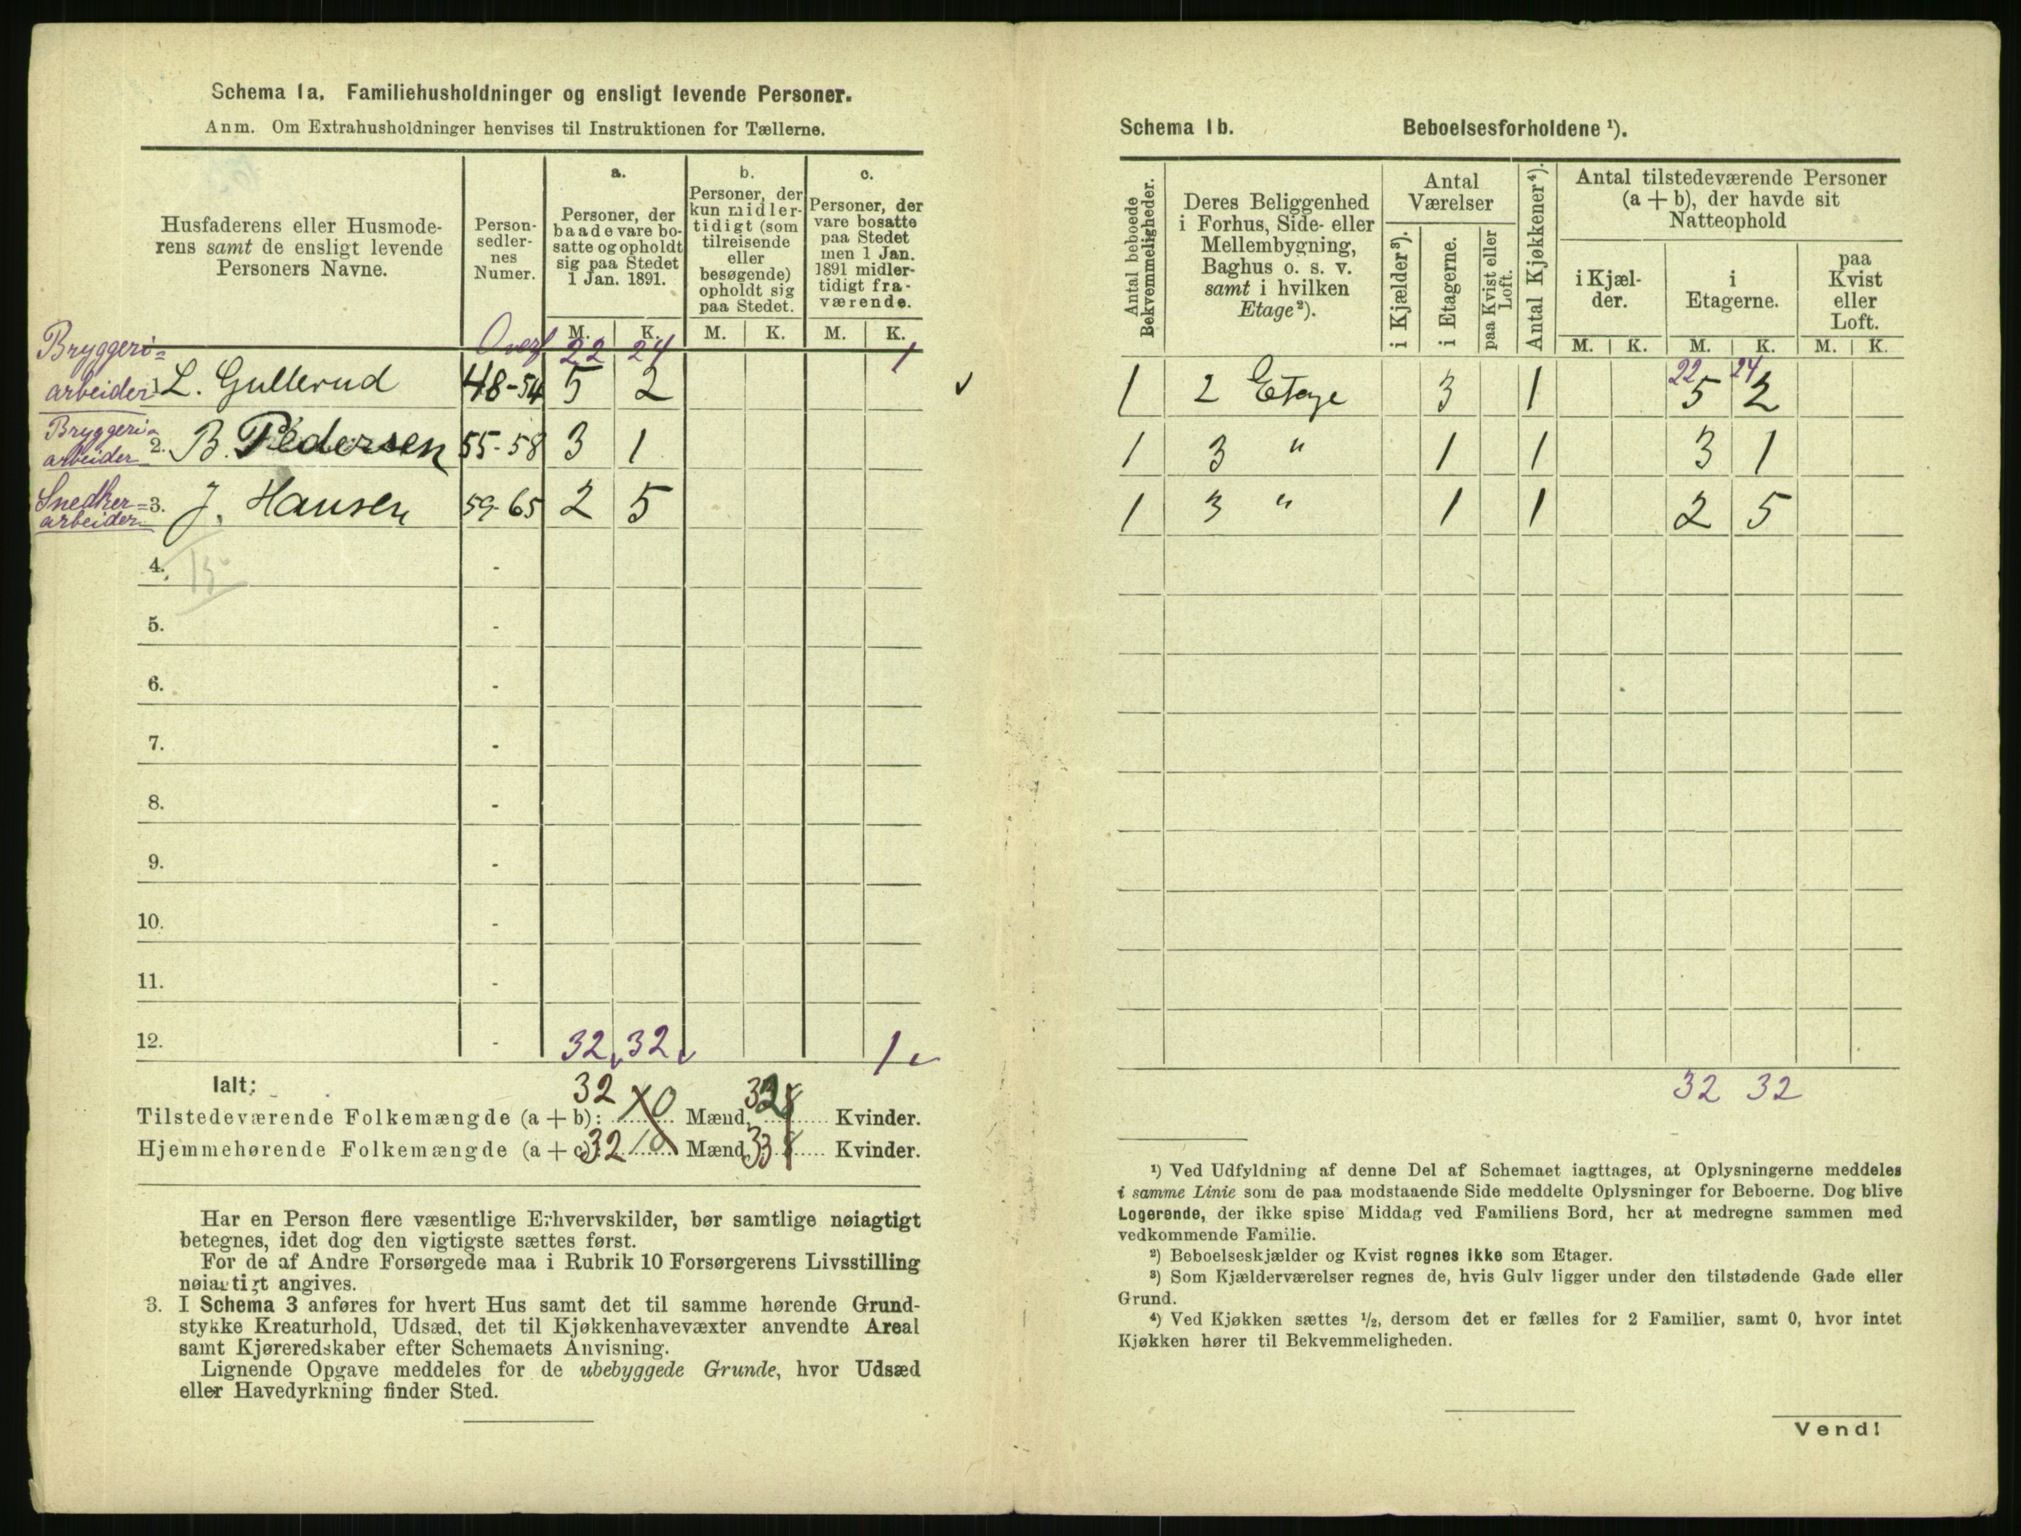 Schema 1a. Familiehusholdninger og ensligt levende Personer.
Anm. Om Extrahusholdninger henvises til Instruktionen for Tællerne.
Husfaderens eller Husmode-
rens samt de ensligt levende
Personers Navne.
Person-
sedler-
nes
Numer.
a.
Personer, der
baade vare bo-
satte og opholdt
sig paa Stedet
1 Jan. 1891.
b.
Personer, der
kun midler-
tidigt (som
tilreisende
eller
besøgende)
opholdt sig
paa Stedet.
c.
Personer, der
vare bosatte
paa Stedet
men 1 Jan.
1891 midler-
tidigt fra-
værende.
M. K. M. K. M. K.
Overf 22 24 1
Bryggeri-
arbeider 1 L. Gullerud 48-54 5 2
Bryggeri-
arbeider 2. B. Pedersen 55-58 3 1
Snedker-
arbeider 3. J. Hansen 59-65 2 5
4. -
5. -
6. -
7. -
8. -
9. -
10. -
11. -
12. - 32 32 1
Ialt:
32
Tilstedeværende Folkemængde (a + b): 10 Mænd, 32 8 Kvinder.
Hjemmehørende Folkemængde (a + c): 32 10 Mænd 33 8 Kvinder.
Har en Person flere væsentlige Erhvervskilder, bør samtlige nøiagtigt
betegnes, idet dog den vigtigste sættes først.
For de af Andre Forsørgede maa i Rubrik 10 Forsørgerens Livsstilling
nøiagtigt angives.
3. I Schema 3 anføres for hvert Hus samt det til samme hørende Grund-
stykke Kreaturhold, Udsæd, det til Kjøkkenhavevæxter anvendte Areal
samt Kjøreredskaber efter Schemaets Anvisning.
Lignende Opgave meddeles for de ubebyggede Grunde, hvor Udsæd
eller Havedyrkning finder Sted.
Schema 1b. Beboelsesforholdene ¹).
Antal beboede
Bekvemmeligheder.
Deres Beliggenhed
i Forhus, Side- eller
Mellembygning,
Baghus o. s. v.
samt i hvilken
Etage²).
Antal
Værelser
i Kjælder³).
i Etagerne.
paa Kvist eller
Loft.
Antal Kjøkkener⁴).
Antal tilstedeværende Personer
(a + b), der havde sit
Natteophold
i Kjæl-
der.
i
Etagerne.
paa
Kvist
eller
Loft.
M. K. M. K. M. K.
22 24
1 2 Etage 3 1 5 2
1 3 " 1 1 3 1
1 3 " 1 1 2 5
32 32
¹) Ved Udfyldning af denne Del af Schemaet iagttages, at Oplysningerne meddeles
i samme Linie som de paa modstaaende Side meddelte Oplysninger for Beboerne. Dog blive
Logerende, der ikke spise Middag ved Familiens Bord, her at medregne sammen med
vedkommende Familie.
²) Beboelseskjælder og Kvist regnes ikke som Etager.
³) Som Kjælderværelser regnes de, hvis Gulv ligger under den tilstødende Gade eller
Grund.
⁴) Ved Kjøkken sættes ½, dersom det er fælles for 2 Familier, samt 0, hvor intet
Kjøkken hører til Bekvemmeligheden.
Vend!